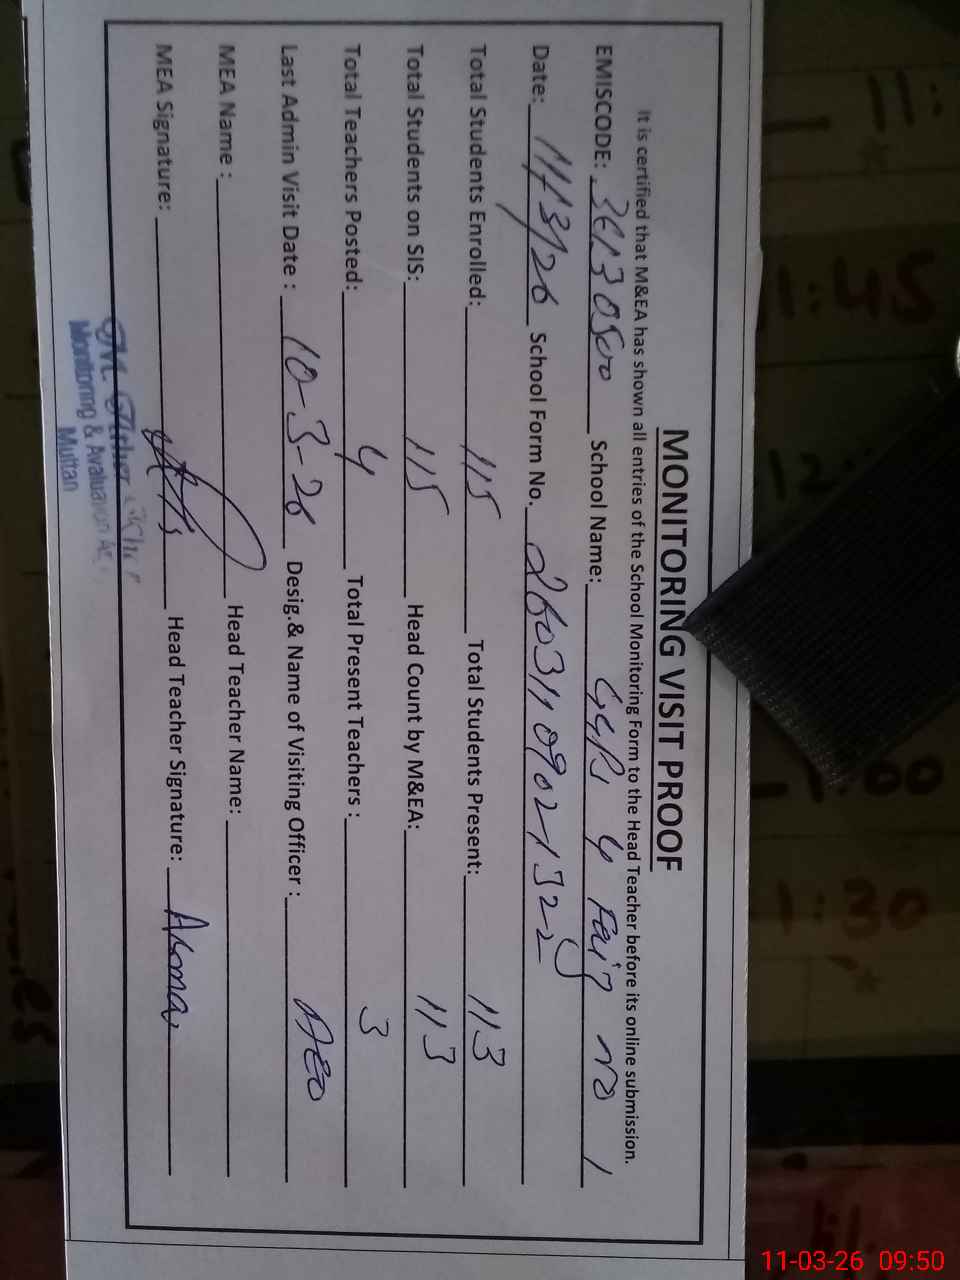 MONITORING VISIT PROOF
It is certified that M&EA has shown all entries of the School Monitoring Form to the Head Teacher before its online submission.
EMISCODE: 36130500 School Name: 4 Faiz no 1
Date: 11/3/26 School Form No. 26031109021322
Total Students Enrolled: 115 Total Students Present: 113
Total Students on SIS: 115 Head Count by M&EA: 113
Total Teachers Posted: 4 Total Present Teachers : 3
Last Admin Visit Date : 10-3-26 Desig.& Name of Visiting Officer : AEO
MEA Name : Head Teacher Name:
MEA Signature: Head Teacher Signature: Asma
Monitoring & Avaluation
Multan
1:45
12:
1:00
1:30
11-03-26 09:50